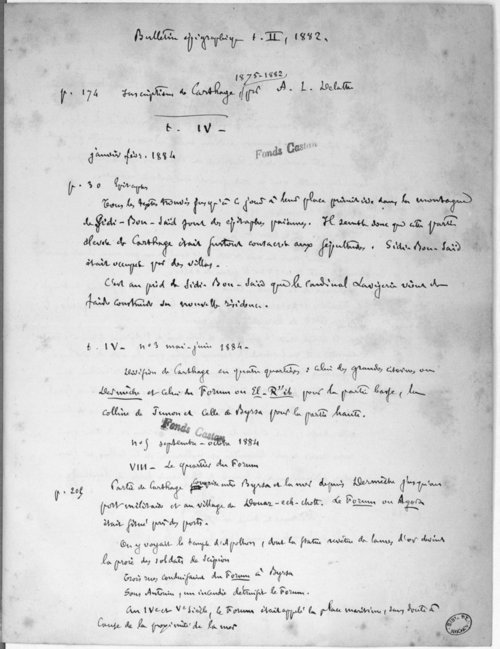 Bulletin épigraphique t. II, 1882.
1875-1882
p. 174 Inscriptions de Carthage par A. L. Delattre
t. IV -
janvier févr. 1884
Fonds Castan
p. 30 Epitaphes
Tous les textes trouvés jusqu'à ce jour à leur place primitive dans la montagne
de Sidi-Bou-Saïd sont des épitaphes païennes. Il semble donc que cette partie
élevée de Carthage était surtout consacrée aux sépultures. Sidi-Bou-Saïd
était occupé par des villas.
C'est au pied de Sidi-Bou-Saïd que le cardinal Lavigerie vient de
faire construire sa nouvelle résidence.
t. IV - n° 3 mai-juin 1884 -
Division de Carthage en quatre quartiers : celui des grandes citernes ou
Dermèche et celui du Forum ou El-R''ib pour la partie basse, la
colline de Junon et celle de Byrsa pour la partie haute.
Fonds Castan
n° 5 septembre-octobre 1884
VIII - Le quartier du Forum
p. 205 Partie de Carthage comprise entre Byrsa et la mer depuis Dermèche jusqu'au
port militaire et au village de Douar-ech-chott. Le Forum ou Agora
était situé près des ports.
On y voyait le temple d'Apollon, dont la statue revêtue de lames d'or devint
la proie des soldats de Scipion
Trois rues conduisaient du Forum à Byrsa
Sous Antonin, un incendie détruisit le Forum.
Au IVe et Ve siècle, le Forum était appelé la place maritime, sans doute à
cause de la proximité de la mer